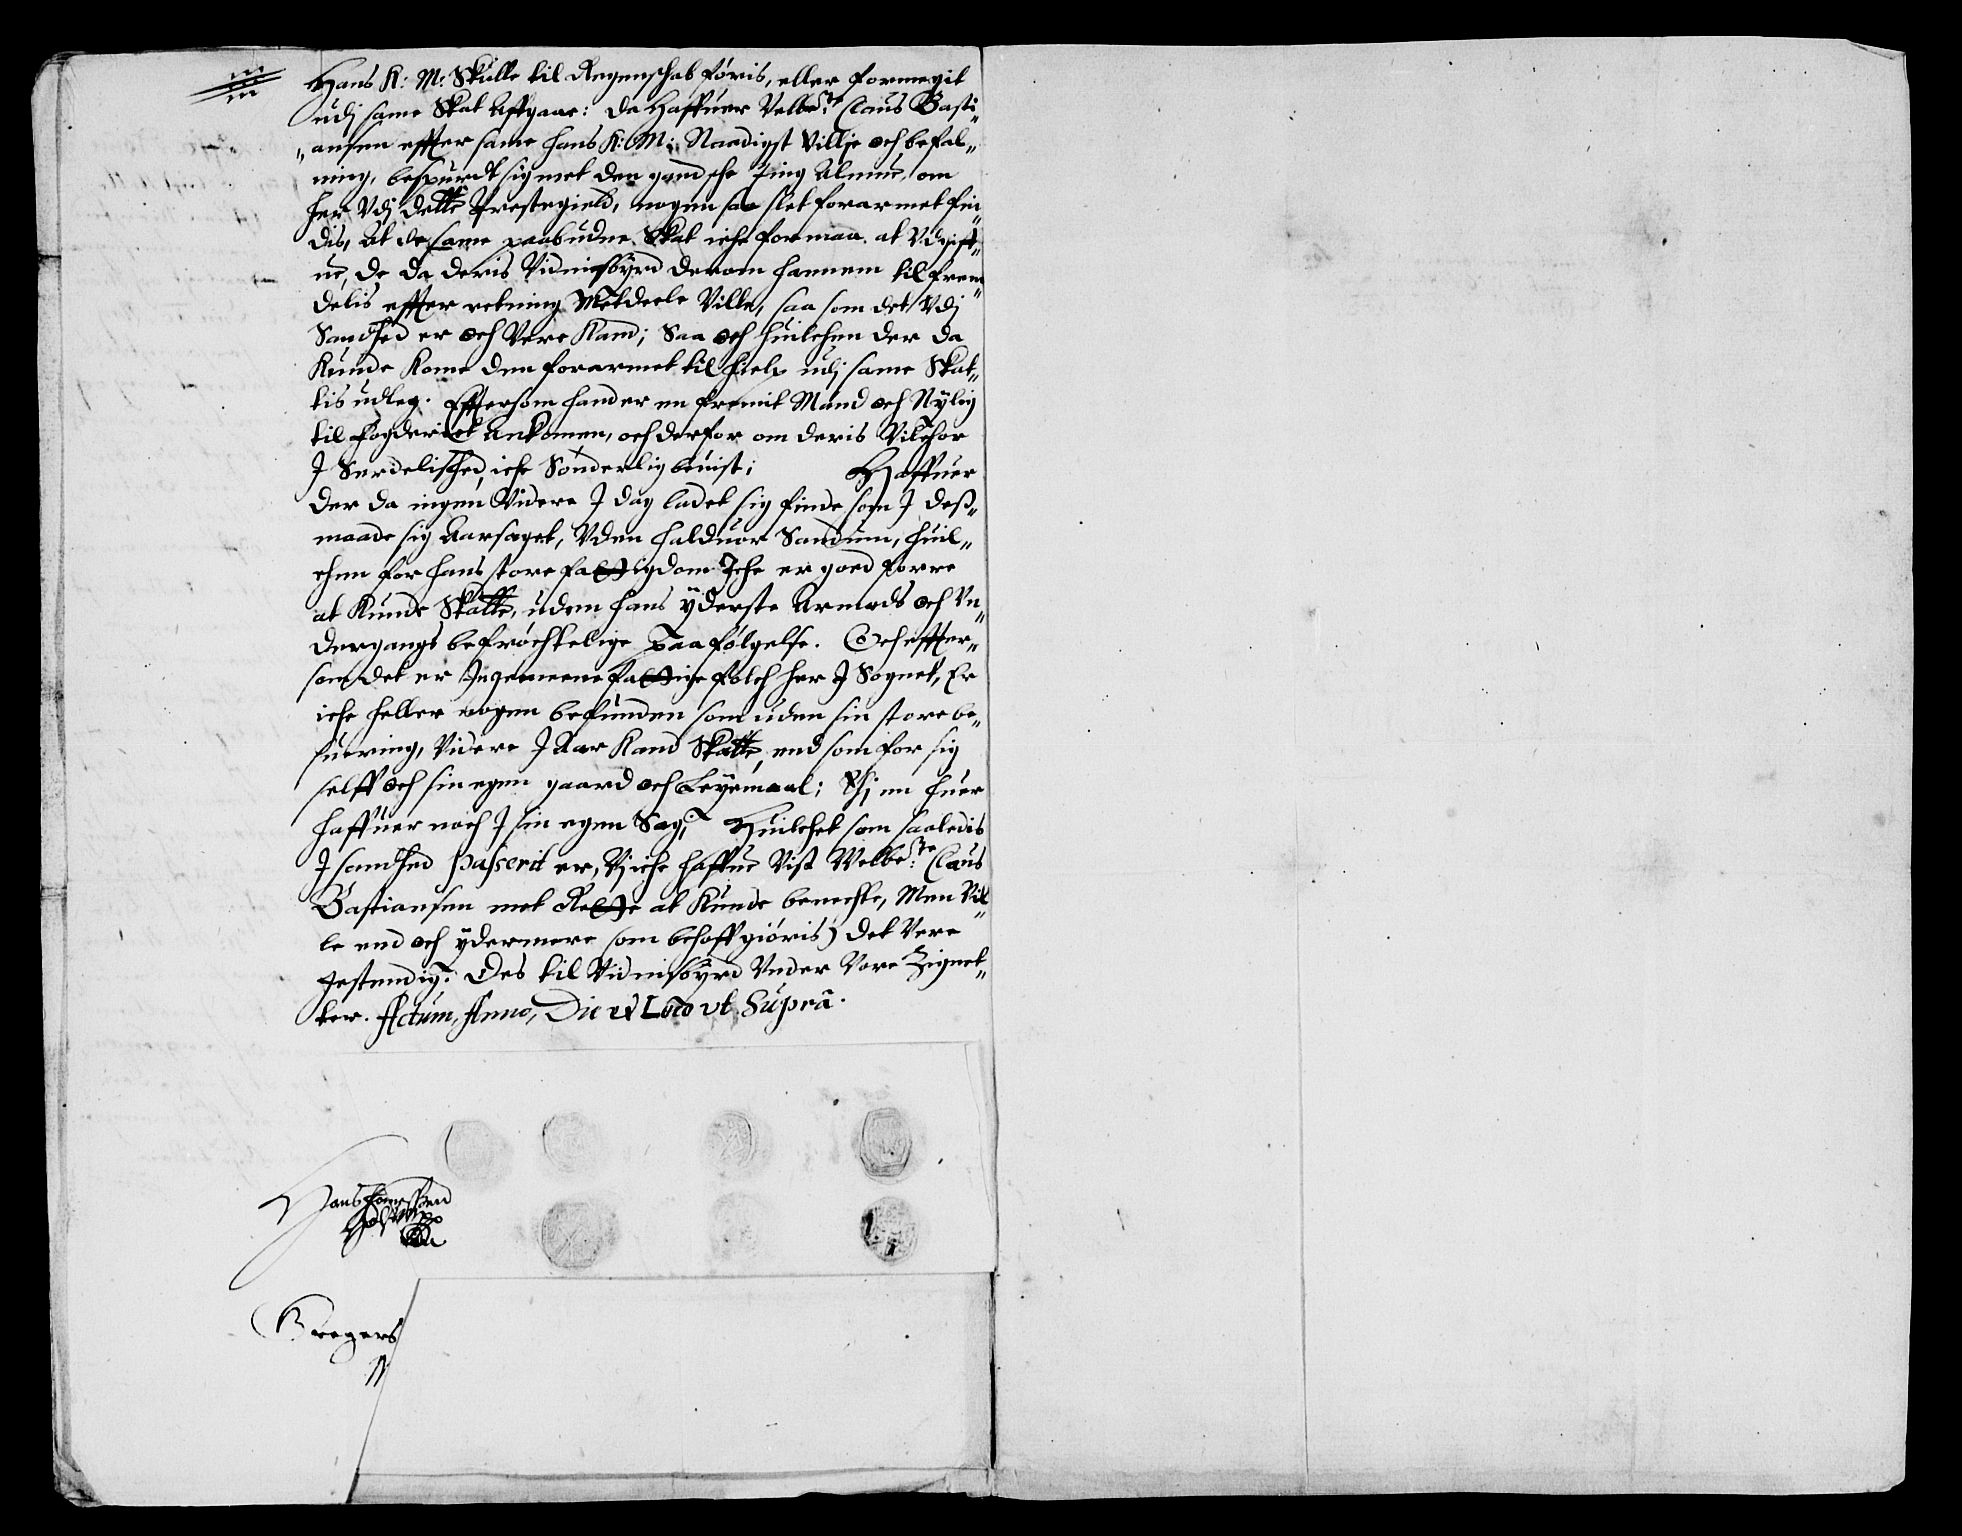 Hans K: M: Skulle til Regenschab føris, eller formegit
udj same Skat Affgaae: da Haffuer Velbe:te Claus Basti„
„ansen effter same hans K: M: Naadigst Villje och befal„
ning, bespurdt sig met den gandsche Ting Almue, om
her Vdj dette Prestegield, nogen saa slet forarmet fin„
dis, At de same paabudne Skat iche formaa at Vdgiff„
ue, de da deris Vidnisbyrd derom hannem til frem„
delis effter retning Metdeele Ville, saa som det Vdj
Sandhed er och Vere Kand; Saa och huilchen der da
Kunde Kome den forarmet til hielp udj same Skat„
tis udleg. Efftersom hand er en fremit Mand och Nylig
til fogderiet Ankomen, och derfor om deris Vilchor
J Serdelished iche Sønderlig beuist; Haffuer
der da ingen Videre J dag ladet sig finde som J deß„
maade sig Aarsaget, Vden Halduor Sandum, huil„
chen for hans store fattigdom Iche er goed forre
at Kunde Skatte, uden hans yderste Armods och Vn„
dergangs befrøchtelige Paafølgelse. Och effter„
som det er Ingemeene fattige folch her J Sognet, Er
iche heller nogen befunden som uden sin store be„
suering, Videre J Aar Kand Skatte, end som for sig
selff och sin egen gaard och Leyemaal; Thj en huer
haffuer noch J sin egen Sag; Huilchet som saaledis
J sandhed passerit er, Vj iche haffue Vist Welbe:te Claus
Bastiansen met Rette at Kunde benechte, Men Vil„
le end och ydermere (om behoff giøris) det Vere
gestendig. Des til Vidnisbyrd Vnder Vore Zignet„
ter. Actum, Anno, Die et Loco vt Supra.
Hans
Gregers